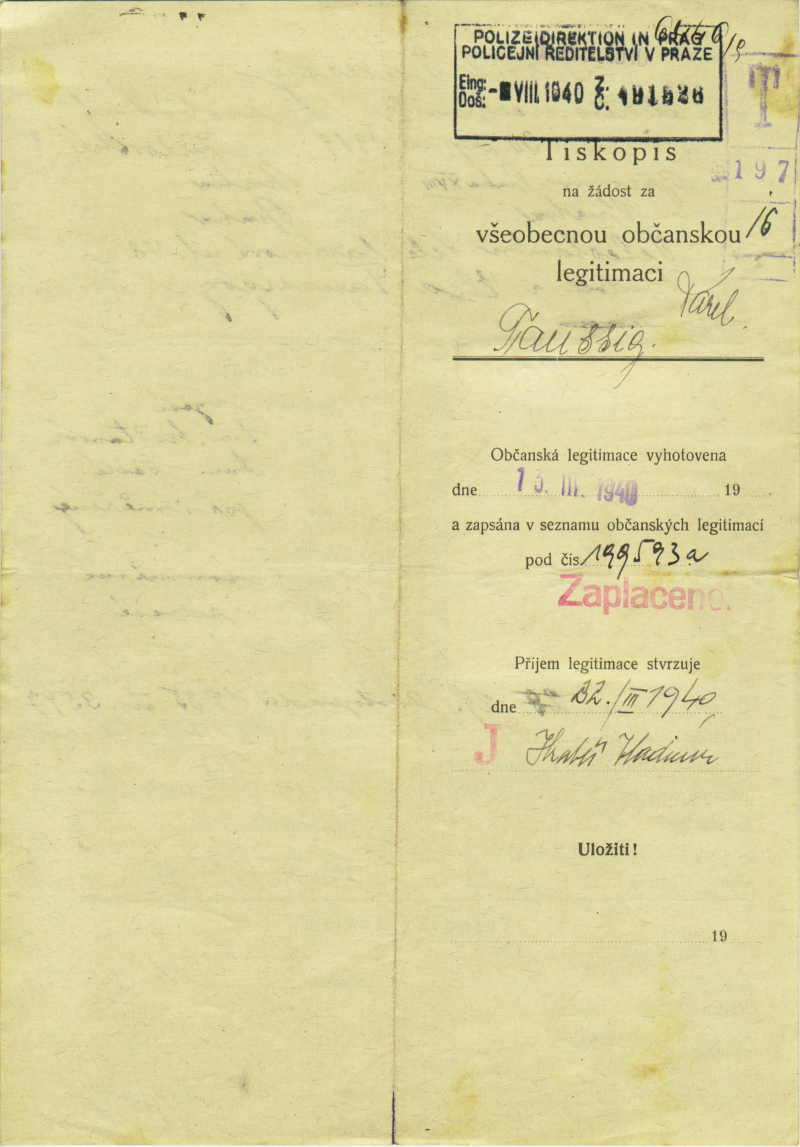 POLIZEIDIREKTION IN PRAG
POLICEJNÍ ŘEDITELSTVÍ V PRAZE
Eing:
Doš:
VIII. 1940 Z. C.
T
Tiskopis
197
na žádost za
všeobecnou občanskou 16
legitimaci
Karel
Taussig.
Občanská legitimace vyhotovena
dne III. 1940 19
a zapsána v seznamu občanských legitimací
pod čís. 199593a
Zaplaceno.
Příjem legitimace stvrzuje
dne 22./III 1940
J
Uložiti!
19